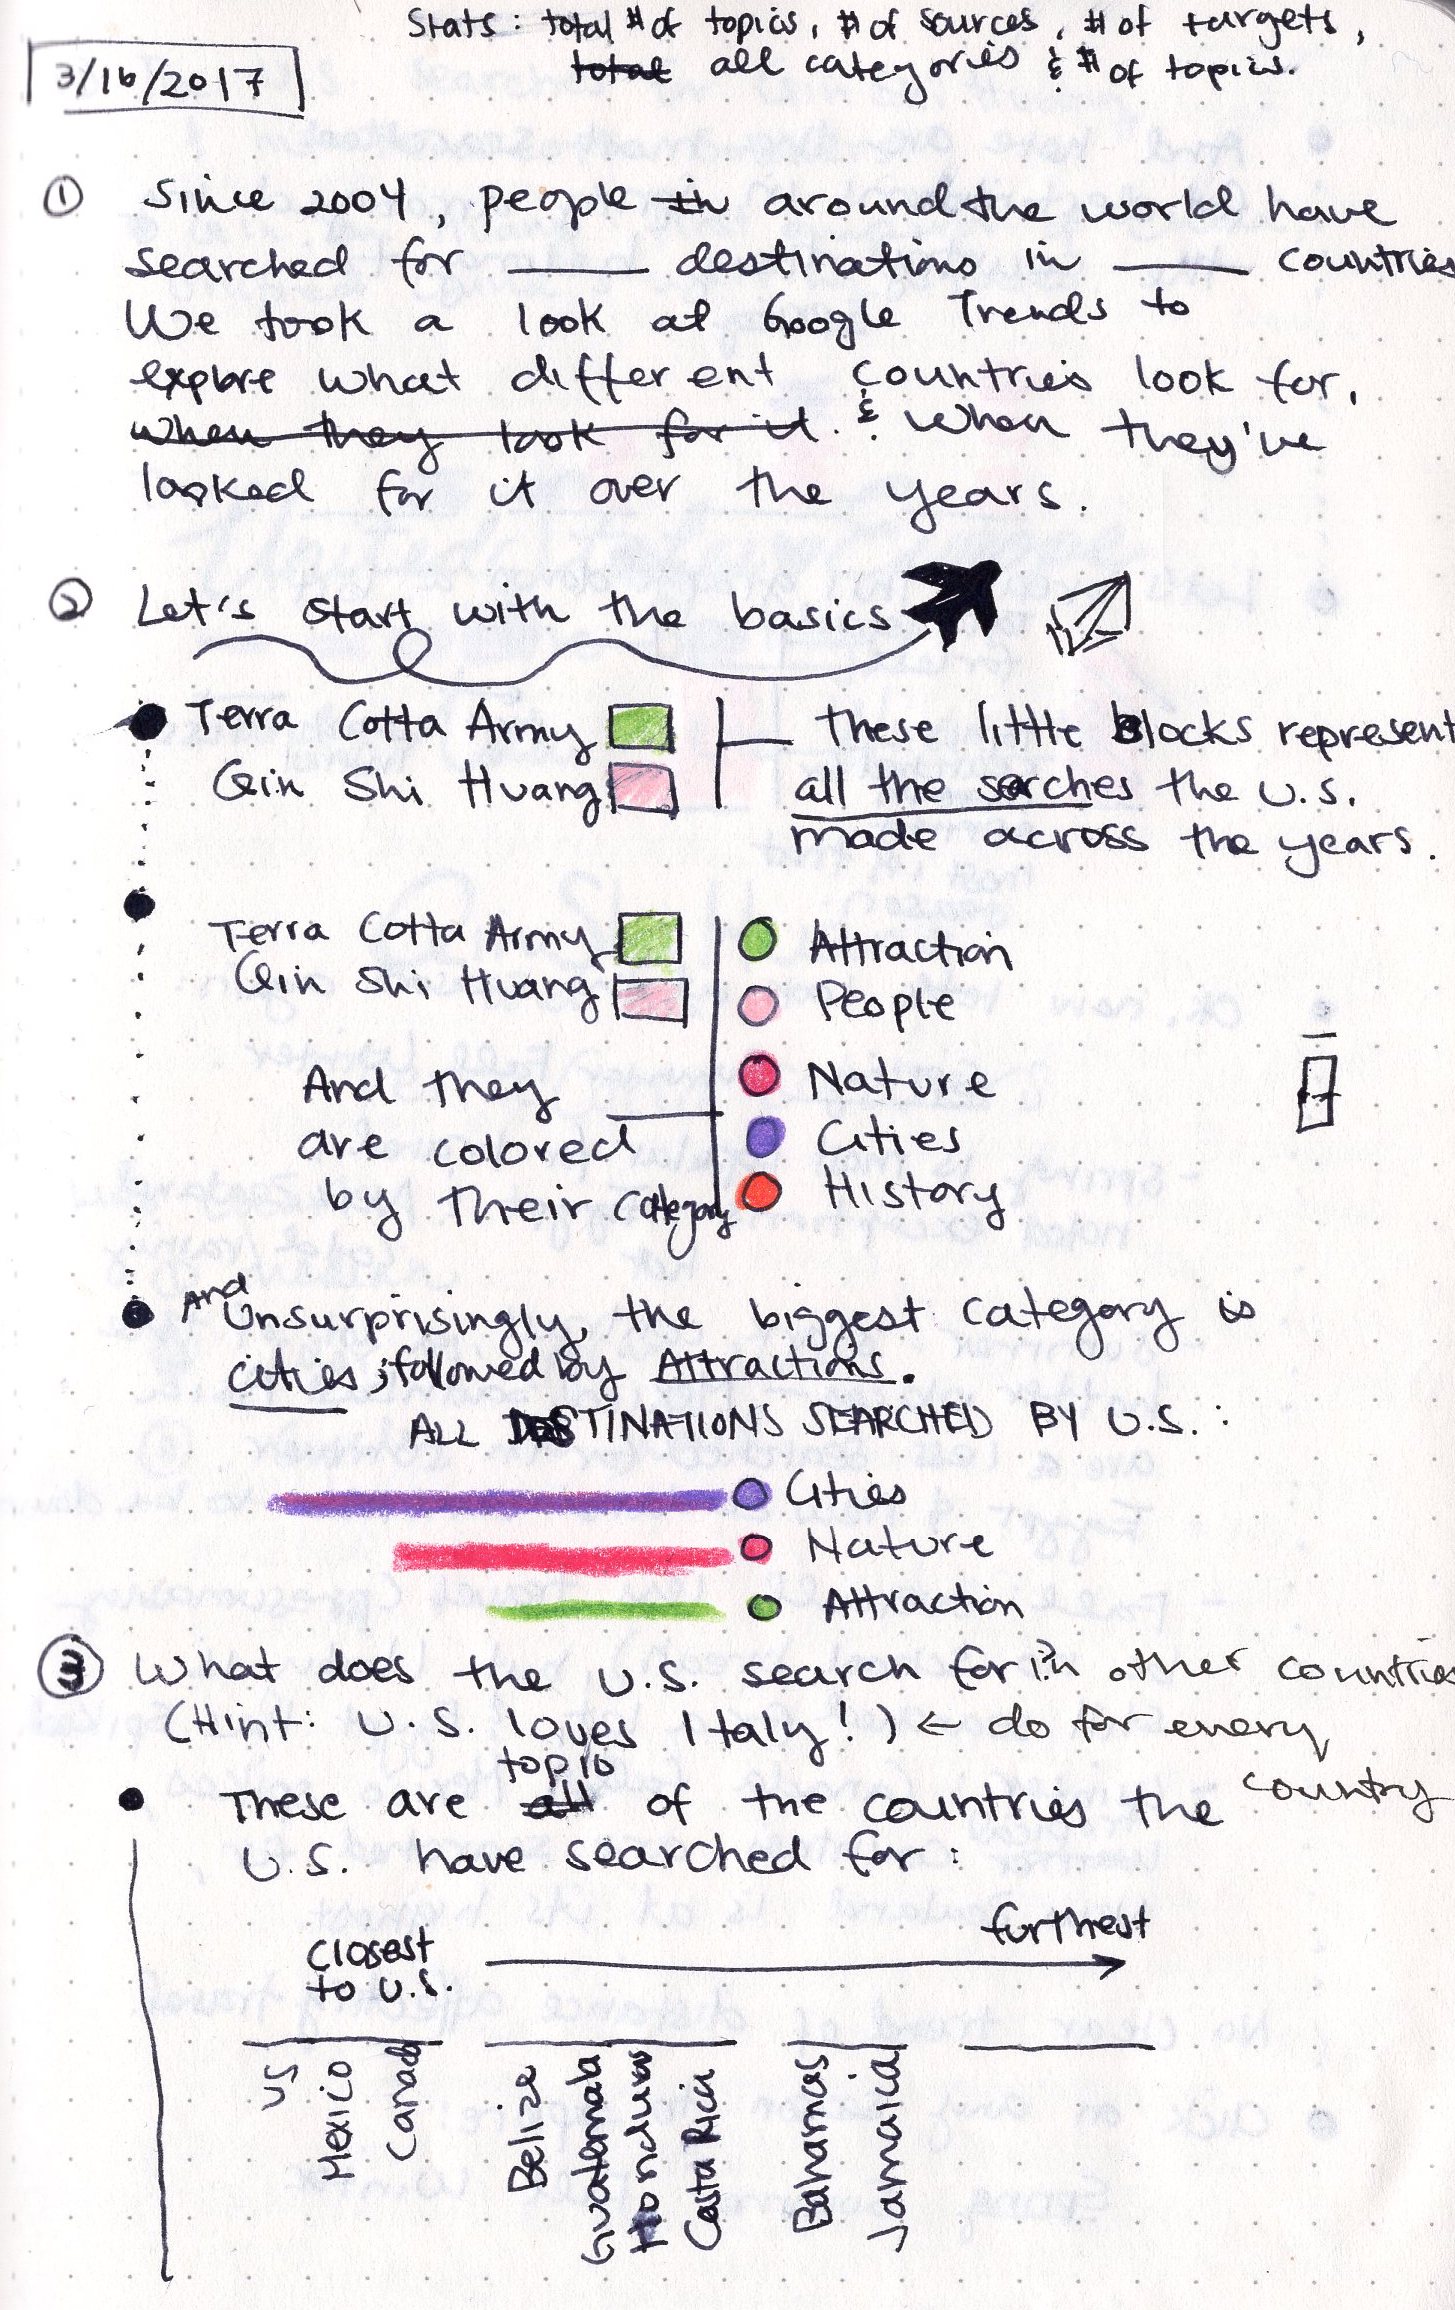 Stats: total # of topics, # of sources, # of targets,
total all categories & # of topics.
3/16/2017
① Since 2004, people in around the world have
searched for ____ destinations in ____ countries
We took a look at Google Trends to
explore what different countries look for,
when they look for it. & when they've
looked for it over the years.
② Let's start with the basics
Terra Cotta Army
Qin Shi Huang
These little blocks represent
all the serches the U.S.
made across the years.
Terra Cotta Army
Qin Shi Huang
And they
are colored
by their category
Attraction
People
Nature
Cities
History
And Unsurprisingly, the biggest category is
cities, followed by Attractions.
ALL DESTINATIONS SEARCHED BY U.S.:
Cities
Nature
Attraction
③ What does the U.S. search for in other countries
(Hint: U.S. loves Italy!) ← do for every
country
top 10
These are all of the countries the
U.S. have searched for:
closest
to U.S.
furthest
US
Mexico
Canada
Belize
Guatemala
Honduras
Costa Rica
Bahamas
Jamaica